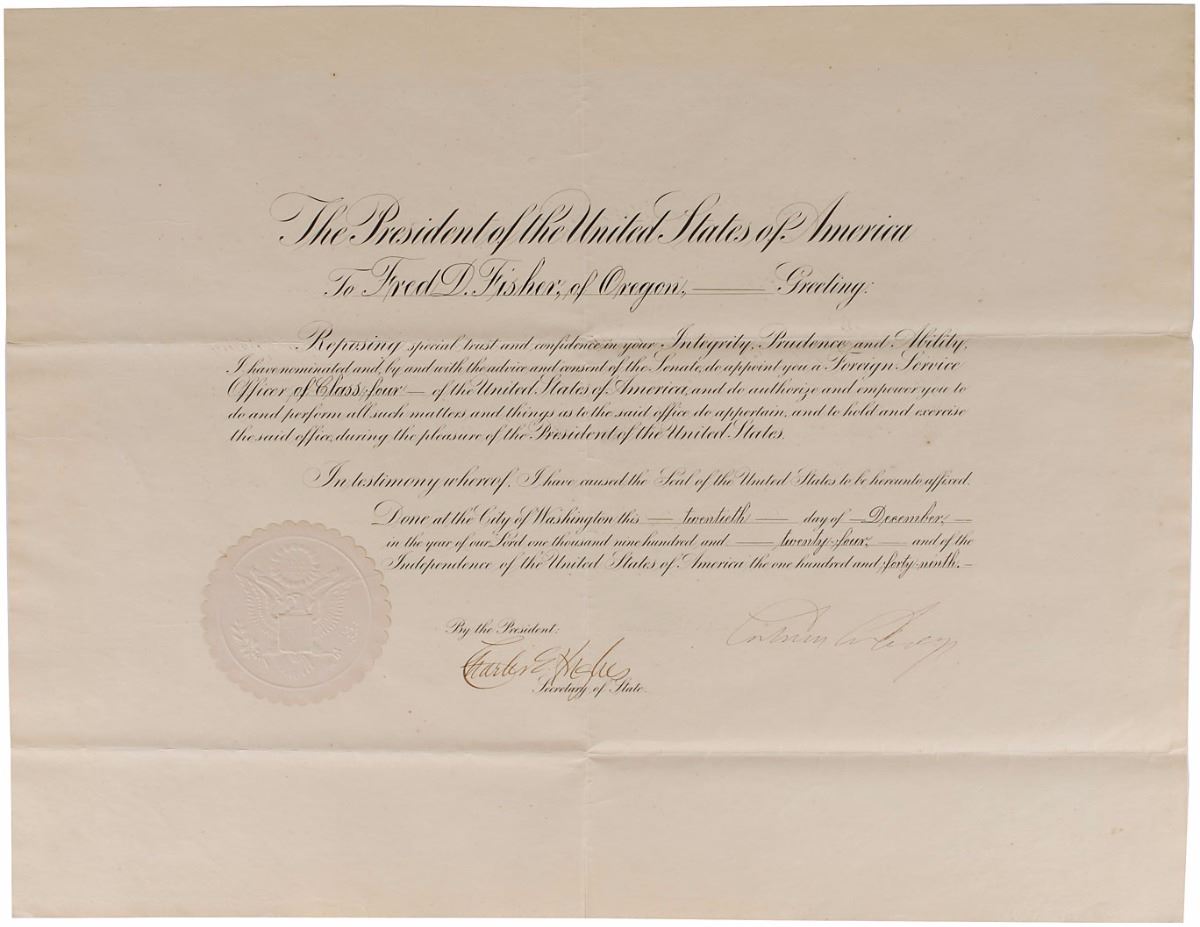 The President of the United States of America
To Fred D. Fisher, of Oregon, Greeting:
Reposing special trust and confidence in your Integrity, Prudence and Ability,
I have nominated and, by and with the advice and consent of the Senate, do appoint you a Foreign Service
Officer of Class four of the United States of America, and do authorize and empower you to
do and perform all such matters and things as to the said office do appertain, and to hold and exercise
the said office, during the pleasure of the President of the United States.
In testimony whereof, I have caused the Seal of the United States to be hereunto affixed.
Done at the City of Washington this twentieth day of December,
in the year of our Lord one thousand nine hundred and twenty-four, and of the
Independence of the United States of America the one hundred and forty-ninth.
By the President:
Charles E. Hughes
Secretary of State.